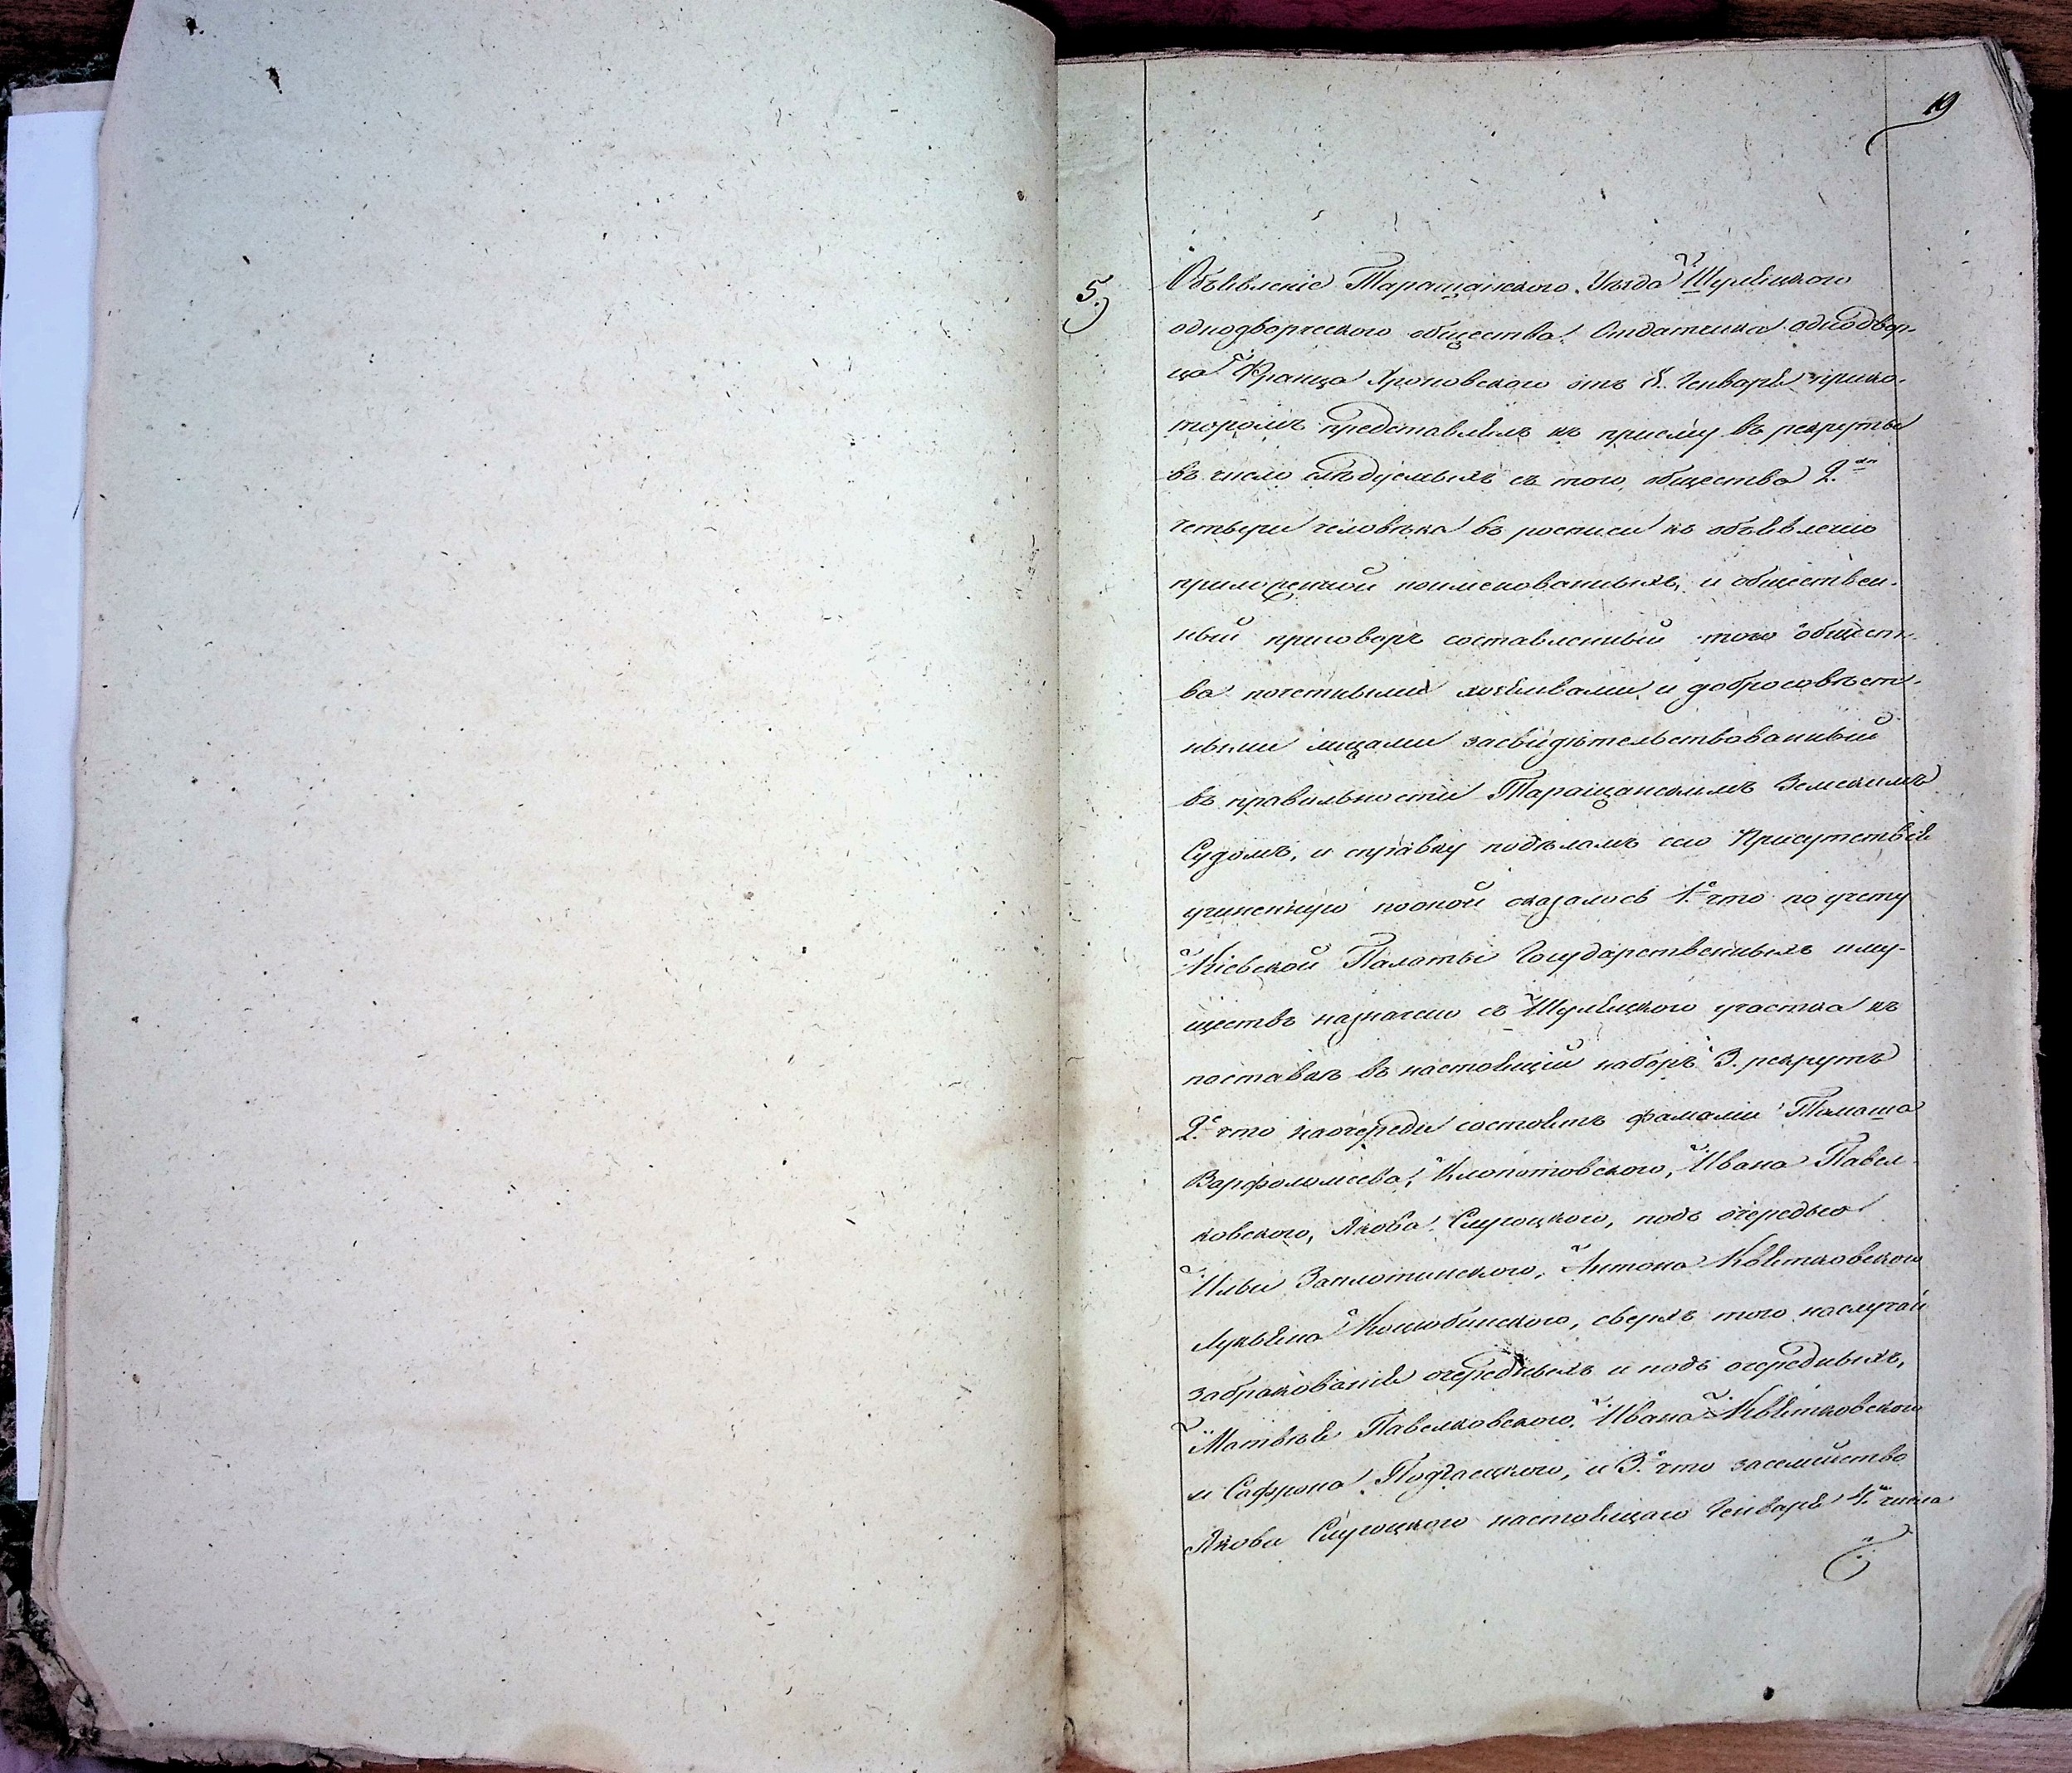 19
5.)
Объявленіе Таращанского Уезда Шулякского
однодворческого общества Отдатчика однодвор-
ца Франца Хроновского отъ 8. Генваря прико-
торомъ представляя къ приему въ рекруты
въ число следуемыхъ съ того общества 2.хъ
четыри человека въ росписи къ объявленію
приложенной поименованныхъ, и обществен-
ный приговоръ составленный того общест-
ва почетными хозяивами и добросовест-
ными лицами засвидетельствованный
въ правильности Таращанскимъ Земскимъ
Судомъ, и справку поделамъ сего Присутствія
учиненную поокой оказалось 1.е что по учету
Кіевской Палаты Государственныхъ иму-
ществъ назначено съ Шулякского участка къ
поставке въ настоящій наборъ 3. рекрутъ
2.е что наочереди состоятъ фамиліи Томаша
Варфоломеева, Клопотовского, Ивана Павел-
ковского, Якова Слуроцкого, подъ очередью
Ильи Заплотинского, Антона Квятковского
Лукьяна Коцюбинского, сверхъ того наслучай
забракованія очередныхъ и подъ очередныхъ,
Матвея Павелковского, Ивана Квятковского
и Сафрона Подгаецкого, и 3.е что засемейство
Якова Слуроцкого настоящаго Генваря 4.го числа